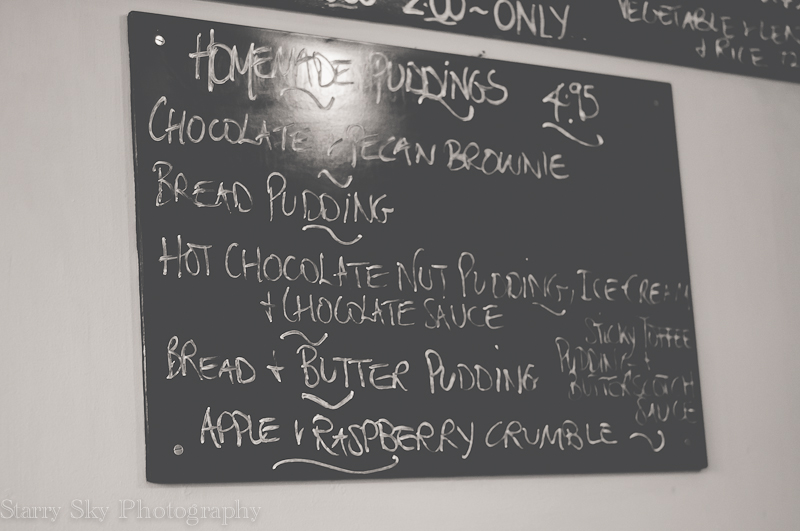 2.00~ONLY
VEGETABLE &
& RICE
HOMEMADE PUDDINGS 4.95
CHOCOLATE & PECAN BROWNIE
BREAD PUDDING
HOT CHOCOLATE NUT PUDDING, ICE CREAM
& CHOCOLATE SAUCE
STICKY TOFFEE
PUDDING &
BUTTERSCOTCH
SAUCE
BREAD & BUTTER PUDDING
APPLE & RASPBERRY CRUMBLE
Starry Sky Photography